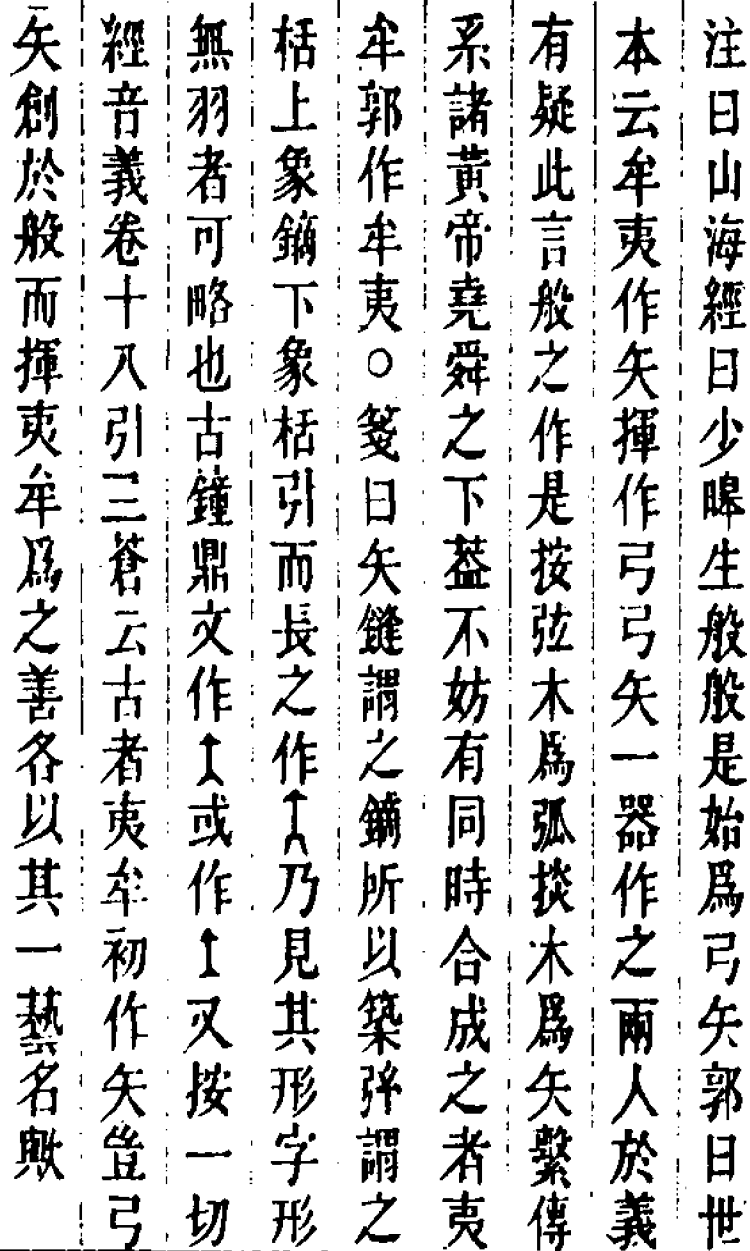 注曰山海經曰少皞生般般是始爲弓矢郭曰世
本云牟夷作矢揮作弓弓矢一器作之兩人於義
有疑此言般之作是按弦木爲弧掞木爲矢繫傳
系諸黃帝堯舜之下葢不妨有同時合成之者夷
牟郭作牟夷○箋曰矢鏠謂之鏑所以築弰謂之
栝上象鏑下象栝引而長之作乃見其形字形
無羽者可略也古鐘鼎文作或作又按一切
經音義卷十八引三蒼云古者夷牟初作矢豈弓
矢創於般而揮夷牟爲之善各以其一藝名歟